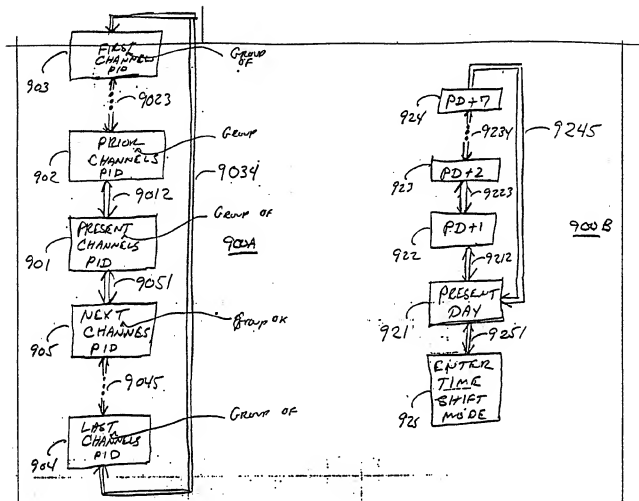 FIRST
CHANNELS
PID
GROUP
OF
903
9023
PRIOR
CHANNELS
PID
GROUP
902
9012
9034
PRESENT
CHANNELS
PID
GROUP OF
901
900A
9051
NEXT
CHANNELS
PID
GROUP OF
905
9045
LAST
CHANNELS
PID
GROUP OF
904
PD+7
924
9234
9245
PD+2
923
9223
PD+1
922
900B
9212
PRESENT
DAY
921
9251
ENTER
TIME
SHIFT
MODE
925